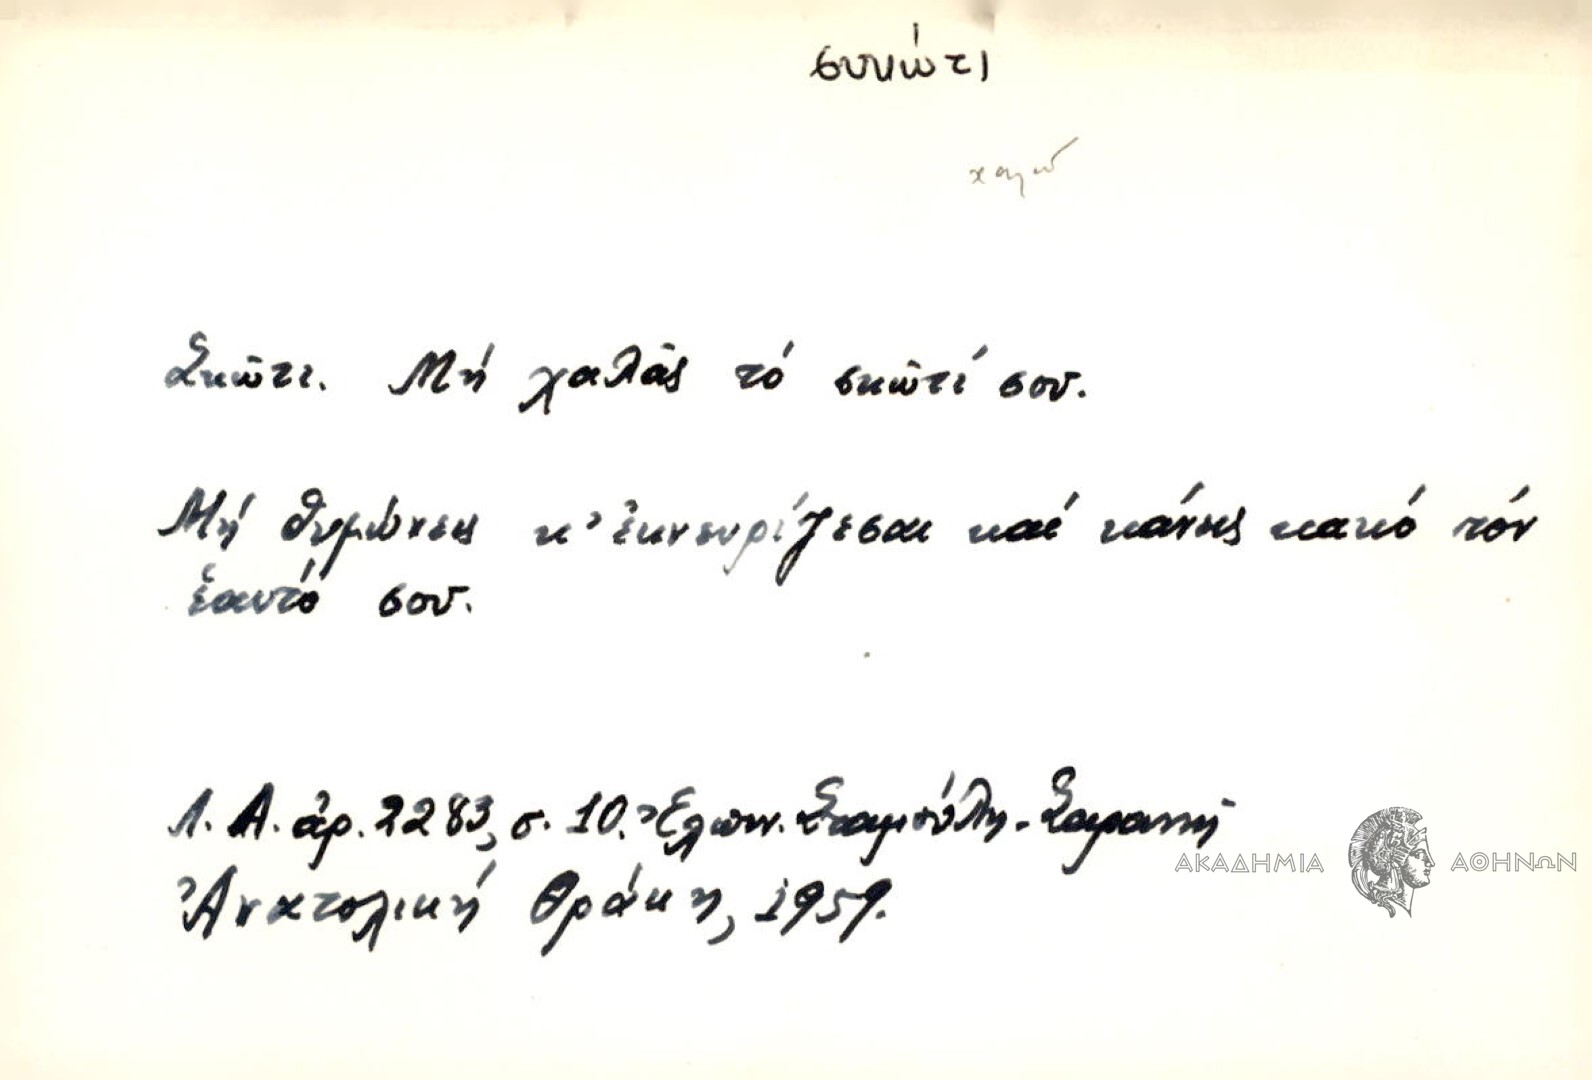 συκώτι
χαλῶ
Σκῶτι. Μή χαλᾶς τό σκῶτί σου.
Μή θυμώνεις κ' ἐκνευρίζεσαι καί κάνεις κακό τόν
ἑαυτό σου.
Λ. Α. ἀρ. 2283, σ. 10. Ἐλπιν. Σταμούλη - Σαραντῆ
Ἀνατολική Θράκη, 1959.
ΑΚΑΔΗΜΙΑ ΑΘΗΝΩΝ